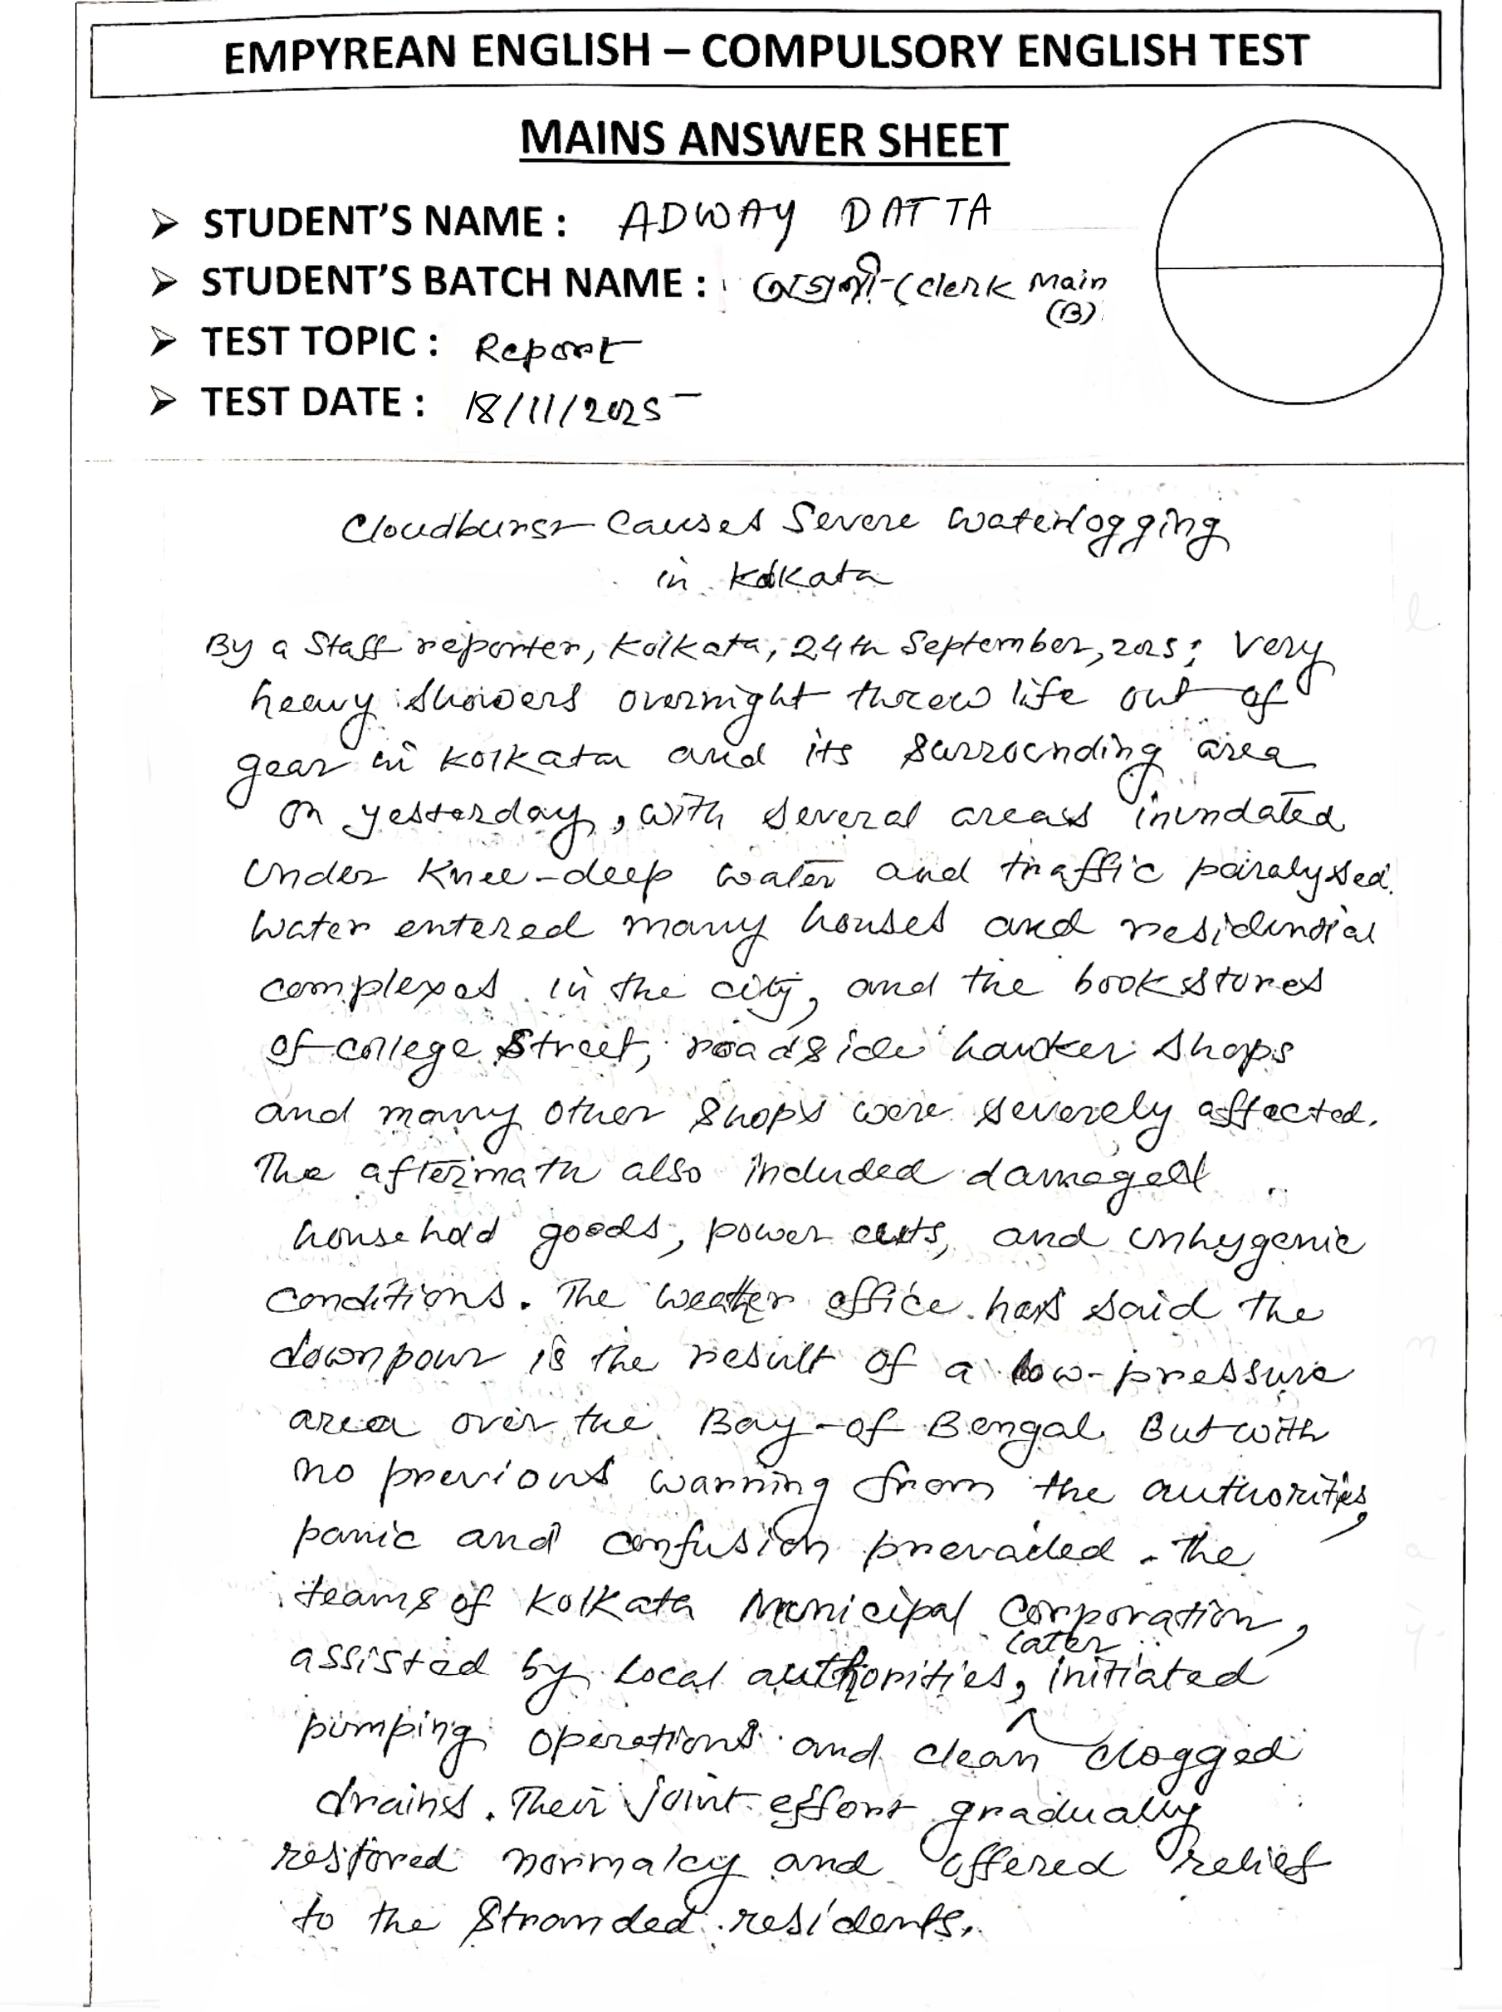 EMPYREAN ENGLISH – COMPULSORY ENGLISH TEST
MAINS ANSWER SHEET
➢ STUDENT'S NAME : ADWAY DATTA
➢ STUDENT'S BATCH NAME : -(Clerk Main
(B)
➢ TEST TOPIC : Report
➢ TEST DATE : 18/11/2025
Cloudburst Causes Severe Waterlogging
in Kolkata
By a Staff reporter, Kolkata, 24th September, 2025: Very
heavy showers overnight threw life out of
gear in Kolkata and its surrounding area
on yesterday, with several areas inundated
under knee-deep water and traffic paralysed.
Water entered many houses and residential
complexes in the city, and the book stores
of college Street, roadside hawker shops
and many other shops were severely affected.
The aftermath also included damaged
household goods, power cuts, and unhygenic
conditions. The weather office has said the
downpour is the result of a low-pressure
area over the Bay-of Bengal. But with
no previous warning from the authorities,
panic and confusion prevailed. The
teams of Kolkata Municipal Corporation,
assisted by local authorities, later initiated
pumping operations and clean clogged
drains. Their joint effort gradually
restored normalcy and offered relief
to the stranded residents.